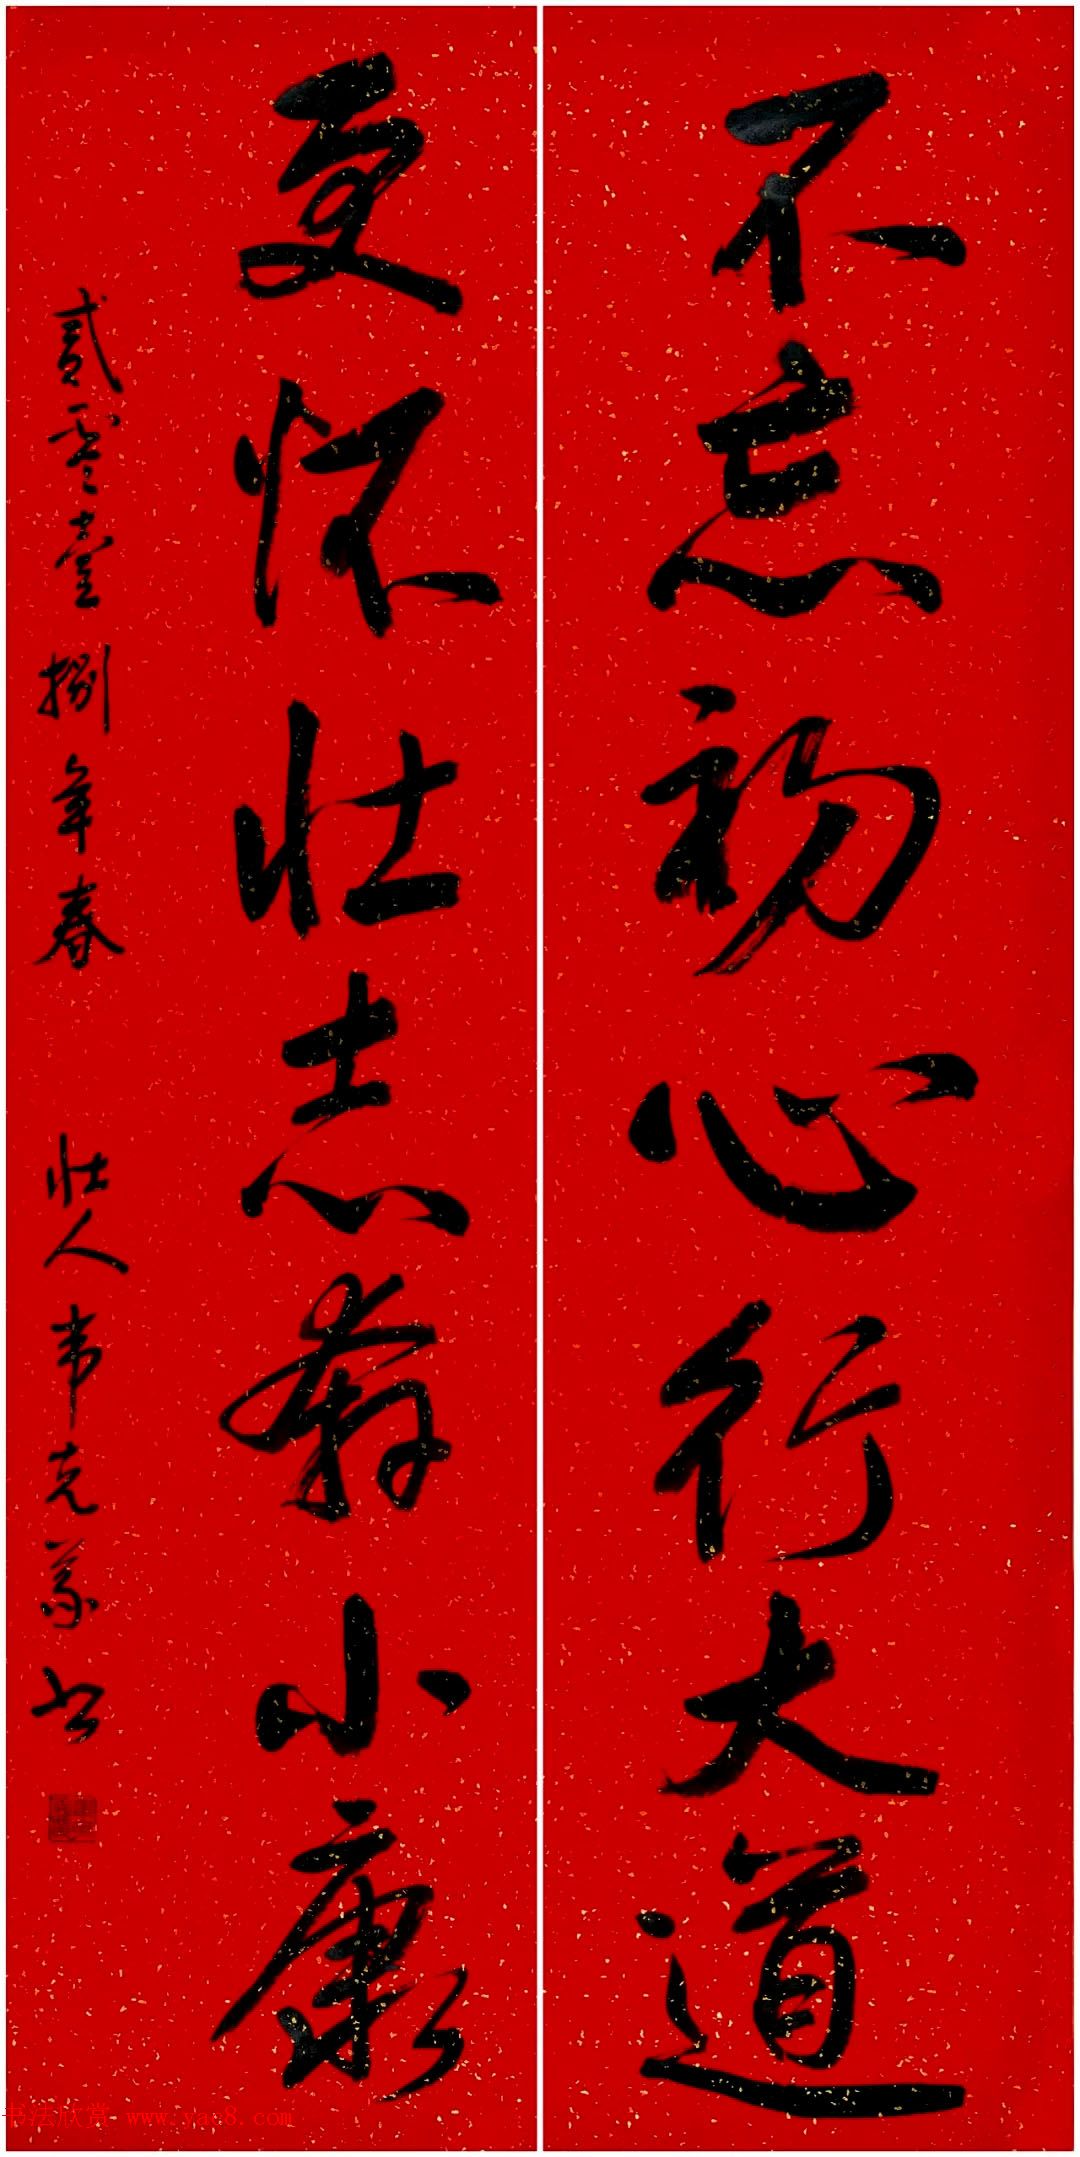 不忘初心行大道
更怀壮志奔小康
贰零壹捌年春 壮人韦克义书
书法欣赏 www.yac8.com